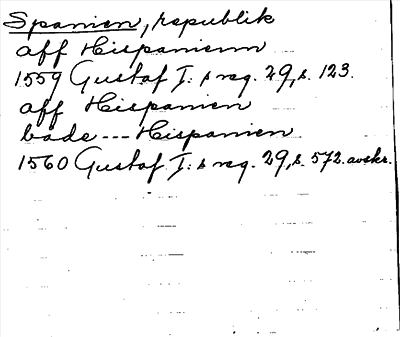 Spanien, republik
aff Hispanienn
1559 Gustaf I:s reg. 29, s. 123.
aff Hispanien
både --- Hispanien
1560 Gustaf I:s reg. 29, s. 572. avskr.